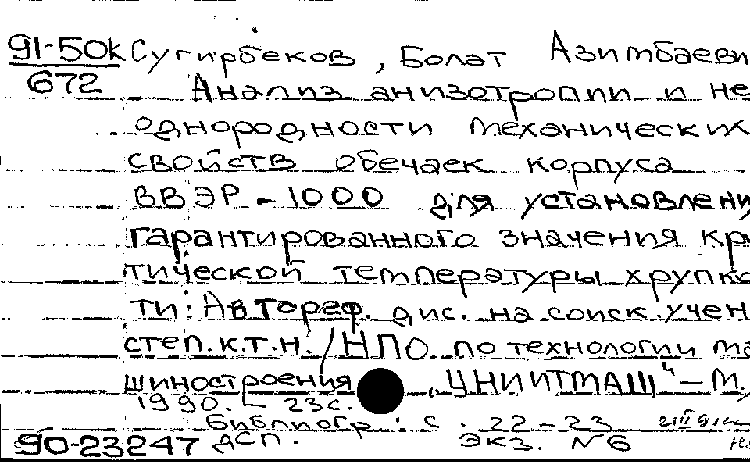 91-50к Сугирбеков, Болат Азимбаеви
672 Анализ анизотропии и не
однородности механических
свойств обечаек корпуса
ВВЭР-1000 для установлени
гарантированного значения кри
тической температуры хрупко
ти: Автореф. дис. на соиск. учен
степ. к.т.н. / НПО по технологии ма
шиностроения "ЦНИИТМАШ" - М.,
1990. - 23с.
Библиогр.: с. 22-23
90-23247 ДСП. экз. №6